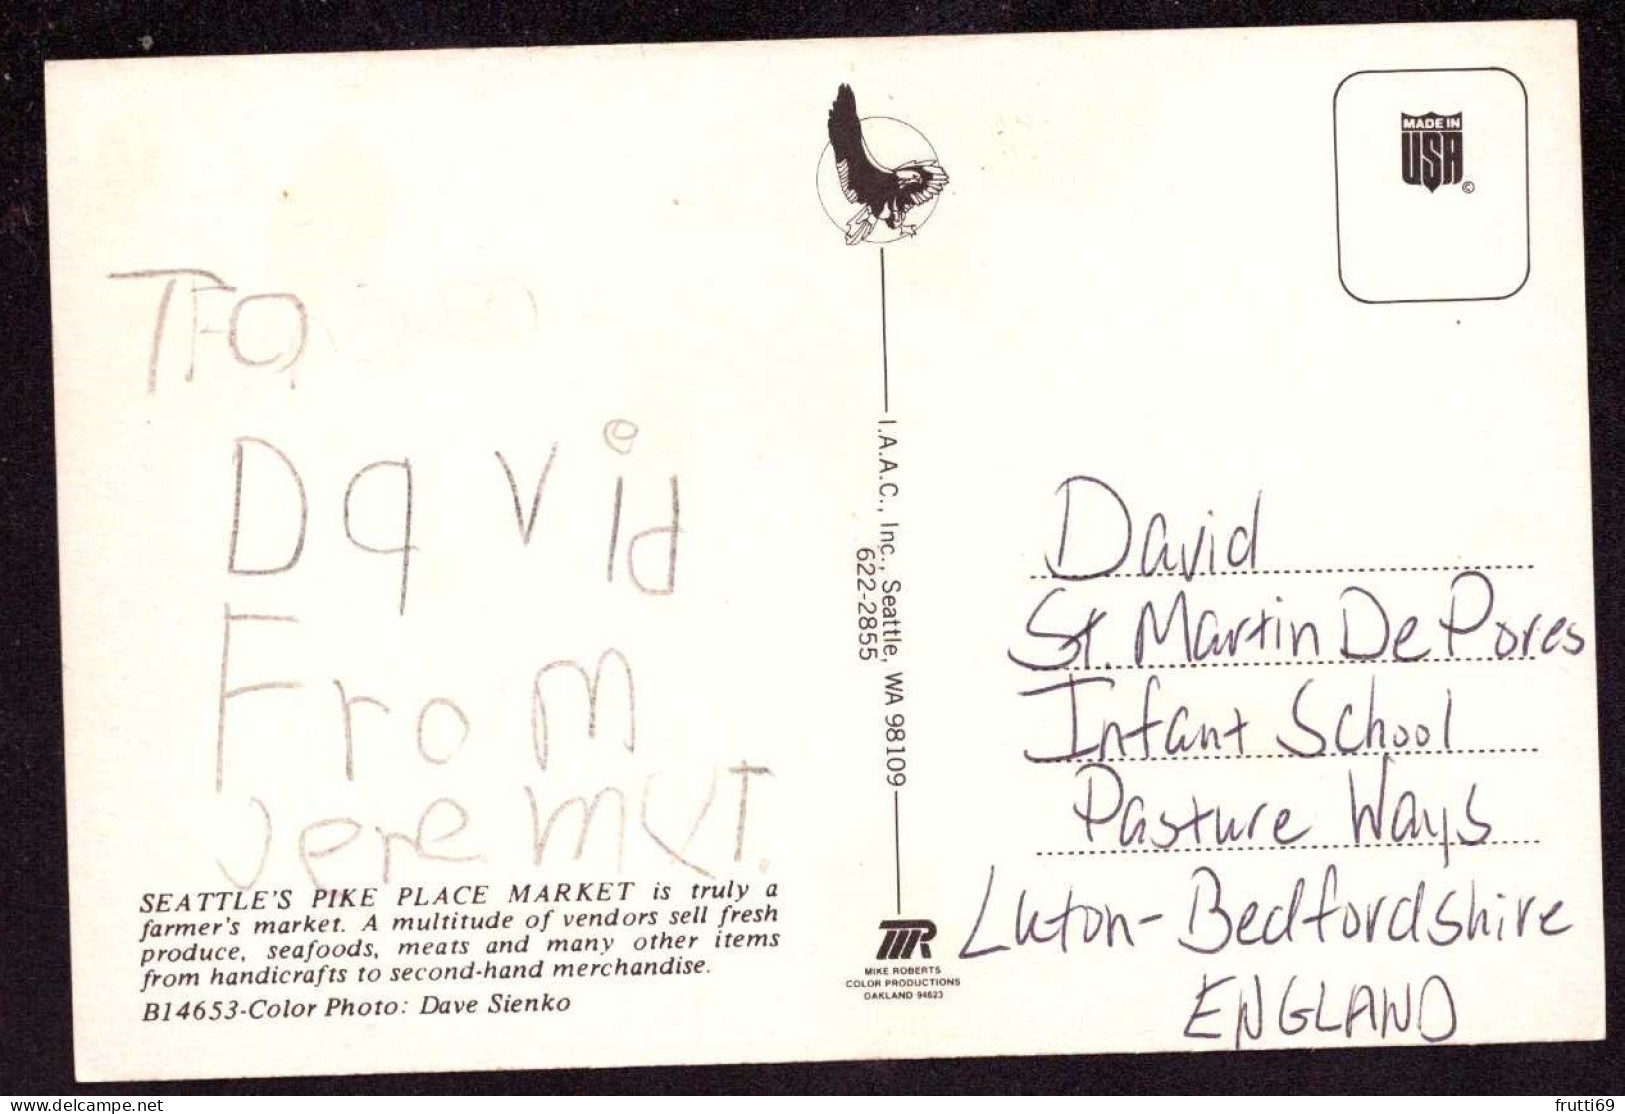 To
David
From
Jeremy T.
SEATTLE'S PIKE PLACE MARKET is truly a
farmer's market. A multitude of vendors sell fresh
produce, seafoods, meats and many other items
from handicrafts to second-hand merchandise.
B14653-Color Photo: Dave Sienko
I.A.A.C., Inc., Seattle, WA 98109
622-2855
MIKE ROBERTS
COLOR PRODUCTIONS
OAKLAND 94623
MADE IN
USA
©
David
St. Martin De Pores
Infant School
Pasture Ways
Luton-Bedfordshire
ENGLAND
delcampe.net
frutti69